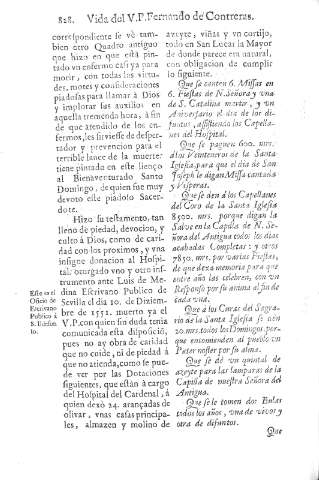 828. Vida del V.P. Fernando de Contreras.
correspondiente se vè tam-
bien otro Quadro antiguo
que hizo en que està pin-
tado vn enfermo assi ya para
morir, con todas las virtu-
des, motes y consideraciones
piadosas para llamar à Dios
y implorar sus auxilios en
aquella tremenda hora, à fin
de que atendido de los en-
fermos, les sirviesse de desper-
tador y prevencion para el
terrible lance de la muerte
tiene pintada en este lienço
al Bienaventurado Santo
Domingo, de quien fue muy
devoto este piadoso Sacer-
dote.
Hizo su testamento, tan
lleno de piedad, devocion, y
culto à Dios, como de cari-
dad con los proximos, y vna
insigne donacion al Hospi-
tal: otorgado vno y otro ins-
trumento ante Luis de Me-
dina Escrivano Publico de
Sevilla el dia 10. de Diziem-
bre de 1551. muerto ya el
V.P. con quien sin duda tenia
comunicada esta disposició,
pues no ay obra de caridad
que no cuide, ni de piedad à
que no atienda, como se pue-
de ver por las Dotaciones
siguientes, que estàn à cargo
del Hospital del Cardenal, à
quien dexò 24. arançadas de
olivar, vnas casas principa-
les, almazen y molino de
Oficio de
Escrivano
Publico à
10.
azeyte; viñas y vn cortijo,
todo en San Lucar la Mayor
de donde parece era natural,
con obligacion de cumplir
lo siguiente.
Que se canten 6. Missas en
6. Fiestas de N. Señora y vna
de S. Catalina martir, y vn
Aniversario el dia de los di-
funtos, assistiendo los Capella-
nes del Hospital.
Que se paguen 600. mrs.
à los Veinteneros de la Santa
Iglesia para que el dia de San
Joseph le digan Missa cantada
y Visperas.
Que se den à los Capellanes
del Coro de la Santa Iglesia
8500. mrs. porque digan la
Salve en la Capilla de N. Se-
ñora del Antigua todos los dias
acabadas Completas: y otros
7850. mrs. por varias Fiestas,
de que dexa memoria para que
entre año las celebren, con vn
Responso por su anima al fin de
cada vna.
Que à los Curas del Sagra-
rio de la Santa Iglesia se dèn
20. mrs. todos los Domingos, por-
que encomienden al pueblo vn
Pater noster por su alma.
Que se dè vn quintal de
azeyte para las lamparas de la
Capilla de nuestra Señora del
Antigua.
Que se le tomen dos Bulas
todos los años, vna de vivos y
otra de difuntos.
Que